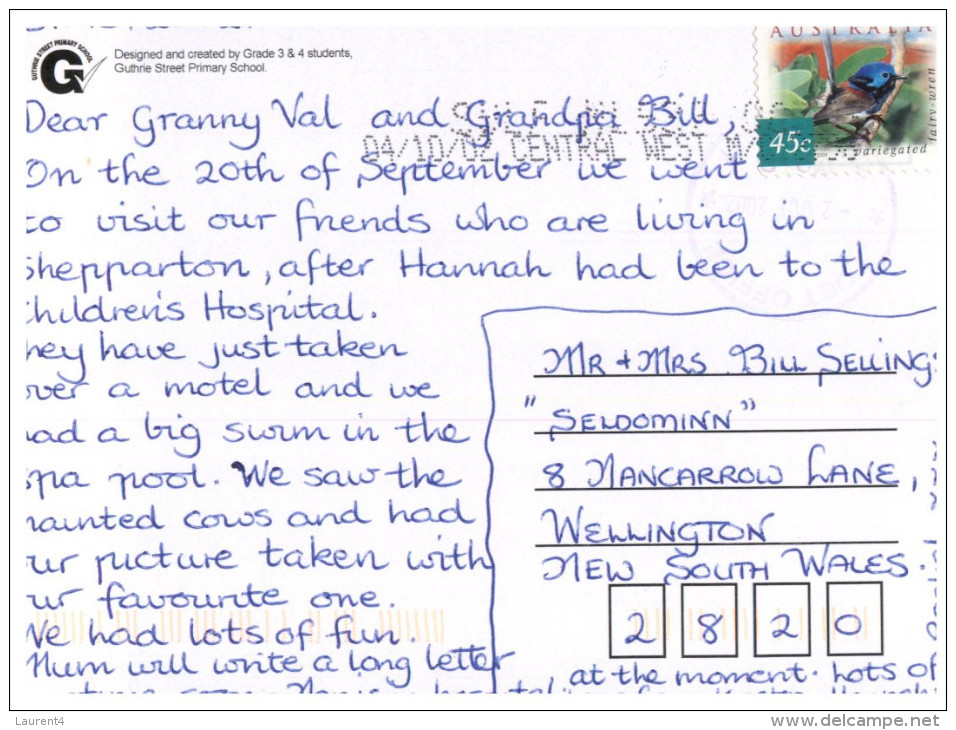 GUTHRIE STREET PRIMARY SCHOOL
G
Designed and created by Grade 3 & 4 students,
Guthrie Street Primary School.
AUSTRALIA
45c
variegated
fairy-wren
04/10/02 CENTRAL WEST
Dear Granny Val and Grandpa Bill,
On the 20th of September we went
to visit our friends who are living in
Shepparton, after Hannah had been to the
Children's Hospital.
hey have just taken
over a motel and we
had a big swim in the
spa pool. We saw the
painted cows and had
ur picture taken with
ur favourite one.
We had lots of fun.
Mum will write a long letter
at the moment. Lots of
MR + MRS BILL SELLING
"SELDOMINN"
8 NANCARROW LANE,
WELLINGTON
NEW SOUTH WALES.
2 8 2 0
Laurent4
www.delcampe.net